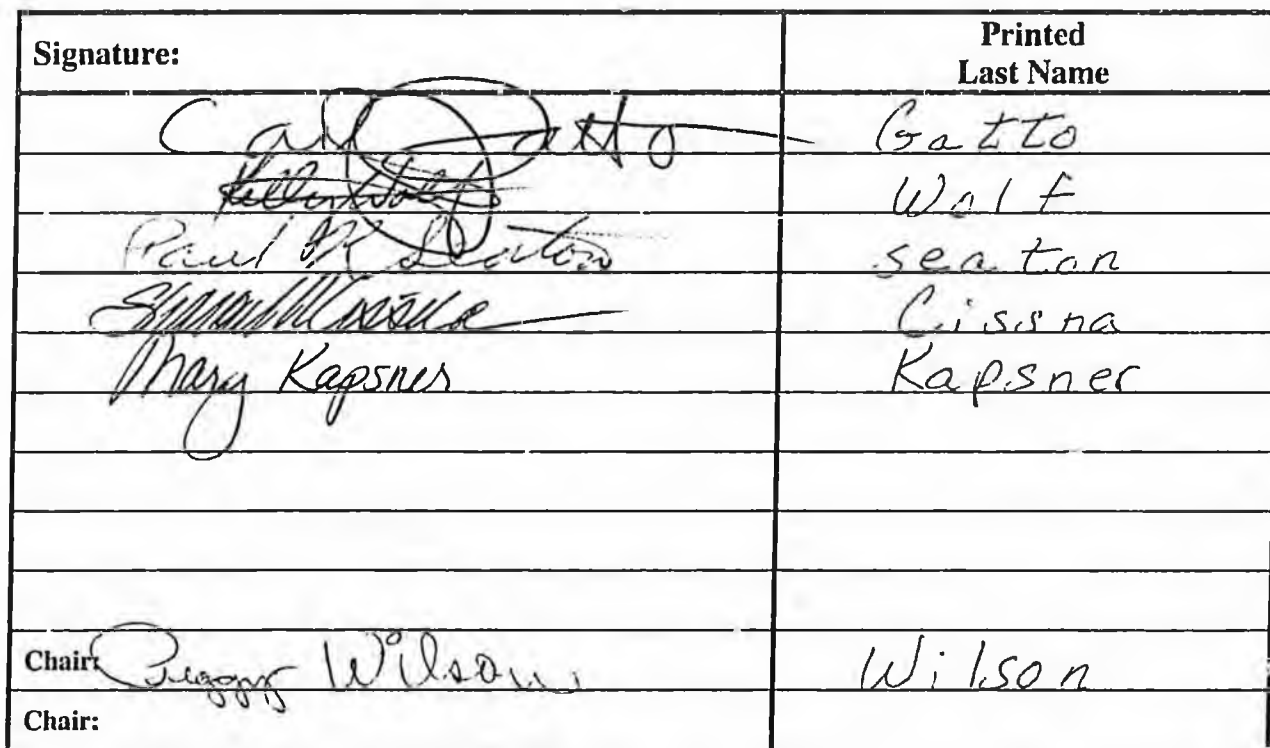 Signature: Printed Last Name
Carl Gatto Gatto
Wolf
Paul K Seaton seaton
Cissna Cissna
Mary Kapsner Kapsner
Chair: Peggy Wilson Wilson
Chair: